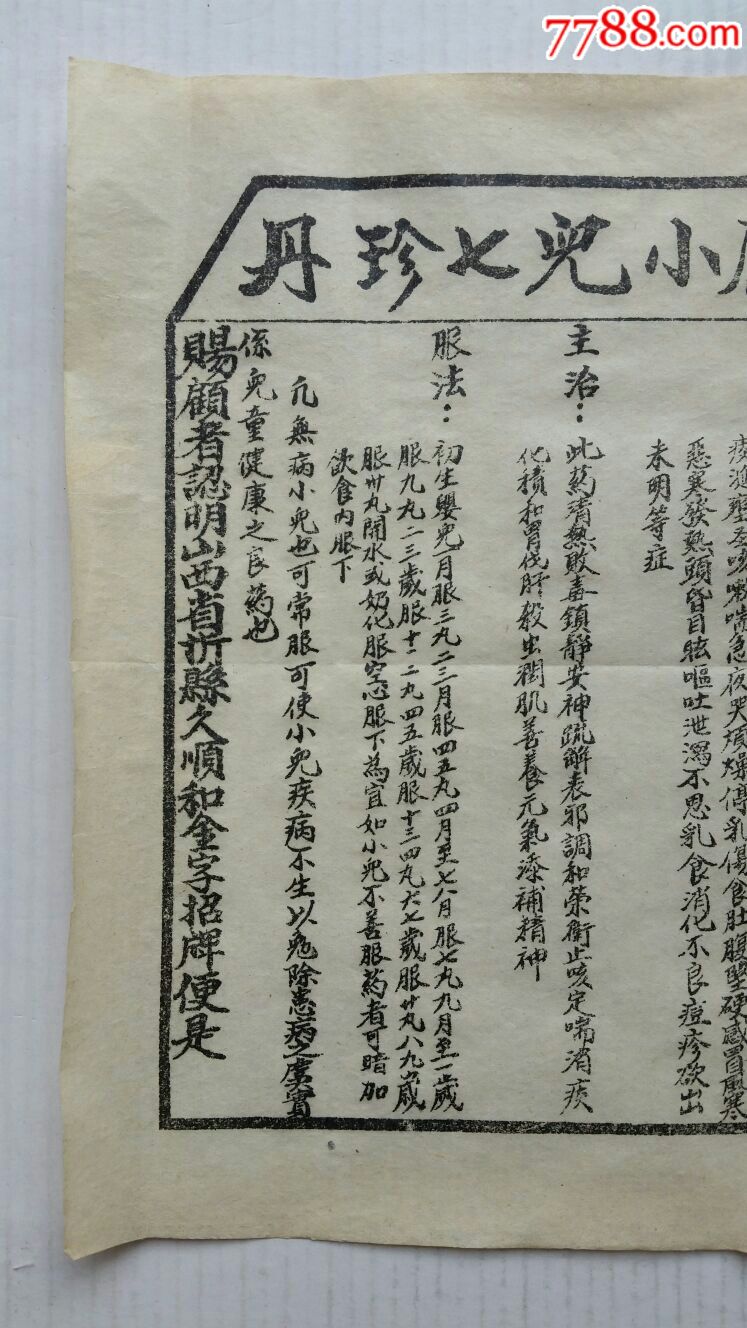 7788.com
小兒七珍丹
痰湧壅盛咳嗽喘急夜哭煩燥停乳傷食肚腹堅硬感冒風寒
惡寒發熱頭昏目眩嘔吐泄瀉不思乳食消化不良痘疹欲出
未明等症
主治：此药清熱敗毒鎮靜安神疏解表邪調和荣衛止咳定喘消痰
化積和胃伐肝殺虫潤肌善養元氣添補精神
服法：初生嬰兒一月服三丸二三月服四五丸四月至七八月服七丸九月至一歲
服九丸二三歲服十一二丸四五歲服十三四丸六七歲服廿丸八九歲
服卅丸開水或奶化服空心服下為宜如小兒不善服药者可暗加
飲食内服下
凢無病小兒也可常服可使小兒疾病不生以免除患病之虞實
係兒童健康之良药也
賜顧者認明山西省忻縣久順和金字招牌便是